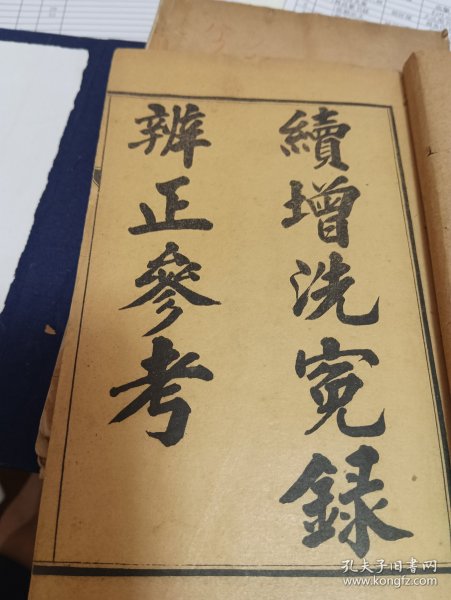 續增洗寃録
辨正參考
孔夫子旧书网
www.kongfz.com